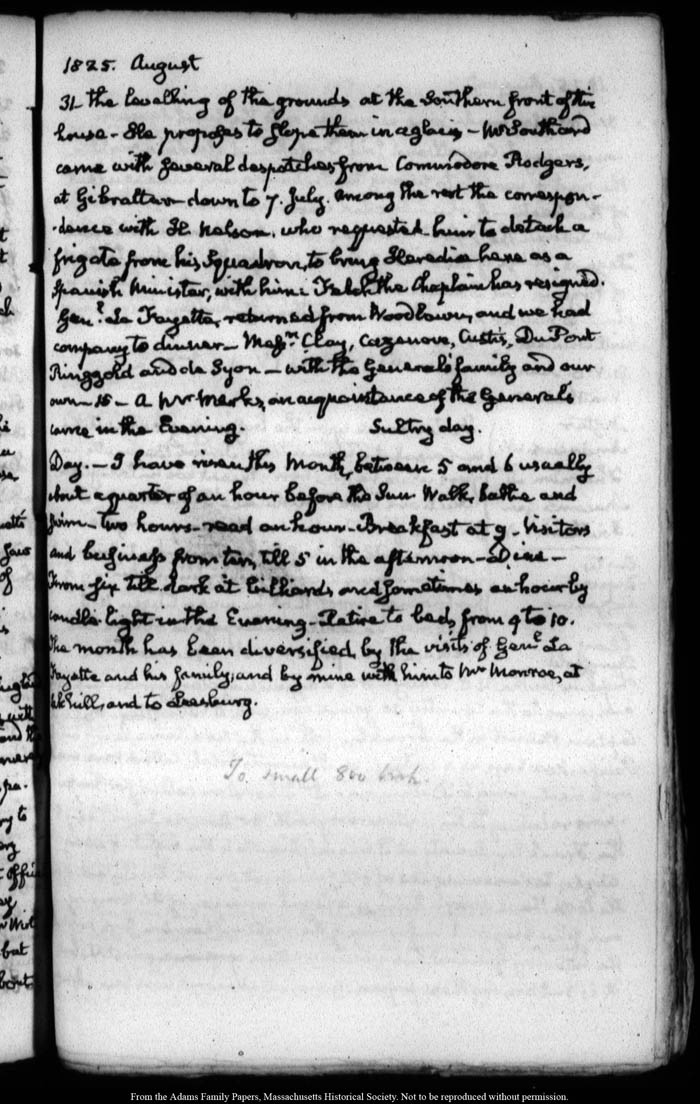 1825. August
31 the levelling of the grounds at the Southern front of the
house - He proposes to slope them in a glacis - Mr Southard
came with several despatches from Commodore Rodgers,
at Gibraltar down to 7. July. among the rest the correspon-
-dence with H. Nelson, who requested him to detach a
frigate from his Squadron, to bring Heredia here as a
Spanish Minister, with him: Felch the Chaplain has resigned.
Genl. La Fayette, returned from Woodlawn, and we had
company to dinner - Messrs. Clay, Cazenove, Custis, Du Pont
Ringgold and de Syon - with the General's family and our
own - 15 - A Mr Marks, an acquaintance of the General's
came in the Evening. Sultry day.
Day. - I have risen this Month, between 5 and 6 usually
about a quarter of an hour before the Sun. Walk, bathe and
swim - two hours - read an hour - Breakfast at 9 - Visitors
and business from ten, till 5 in the afternoon - Dine -
From six till dark at billiards and sometimes an hour by
candle light in the Evening - Retire to bed, from 9 to 10.
The month has been diversified, by the visits of Genl. La
Fayette and his family, and by mine with him to Mr Monroe, at
Oak hill, and to Leesburg.
To small 800
From the Adams Family Papers, Massachusetts Historical Society. Not to be reproduced without permission.